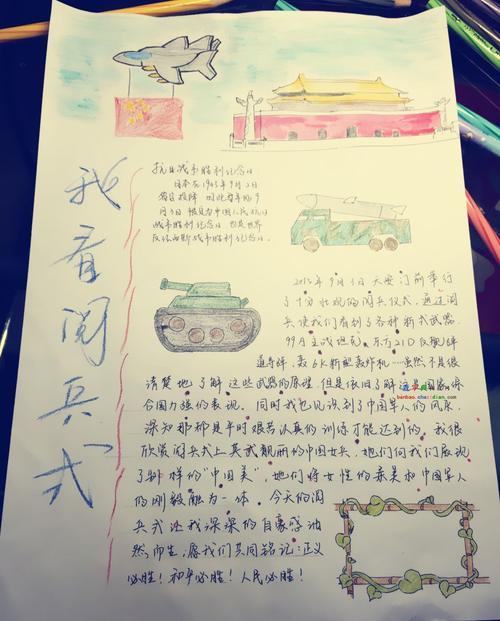 我看阅兵式
抗日战争胜利纪念日
日本在1945年9月2日
签字投降 因此每年的9
月3日被定为中国人民抗日
战争胜利纪念日,也是世界
反法西斯战争胜利纪念日。
2015年9月3日天安门前举行
了十分壮观的阅兵仪式,通过阅
兵使我们看到了各种新式武器
99A主战坦克、东方21D
轰6K新型轰炸机……虽然不是很
清楚地了解这些武器的原理,但是依旧了解这是国家综
合国力强的表现。同时我也见识到了中国军人的风采,
深知那都是平时艰苦认真的训练才能达到的。我很
欣赏阅兵式上英武靓丽的中国女兵,她们向我们展现
了别样的“中国美”,她们将女性的柔美和中国军人
的刚毅融为一体。今天的阅
兵式让我深深的自豪感油
然而生,愿我们共同铭记:正义
必胜!和平必胜!人民必胜!
banbao.chazidian.com